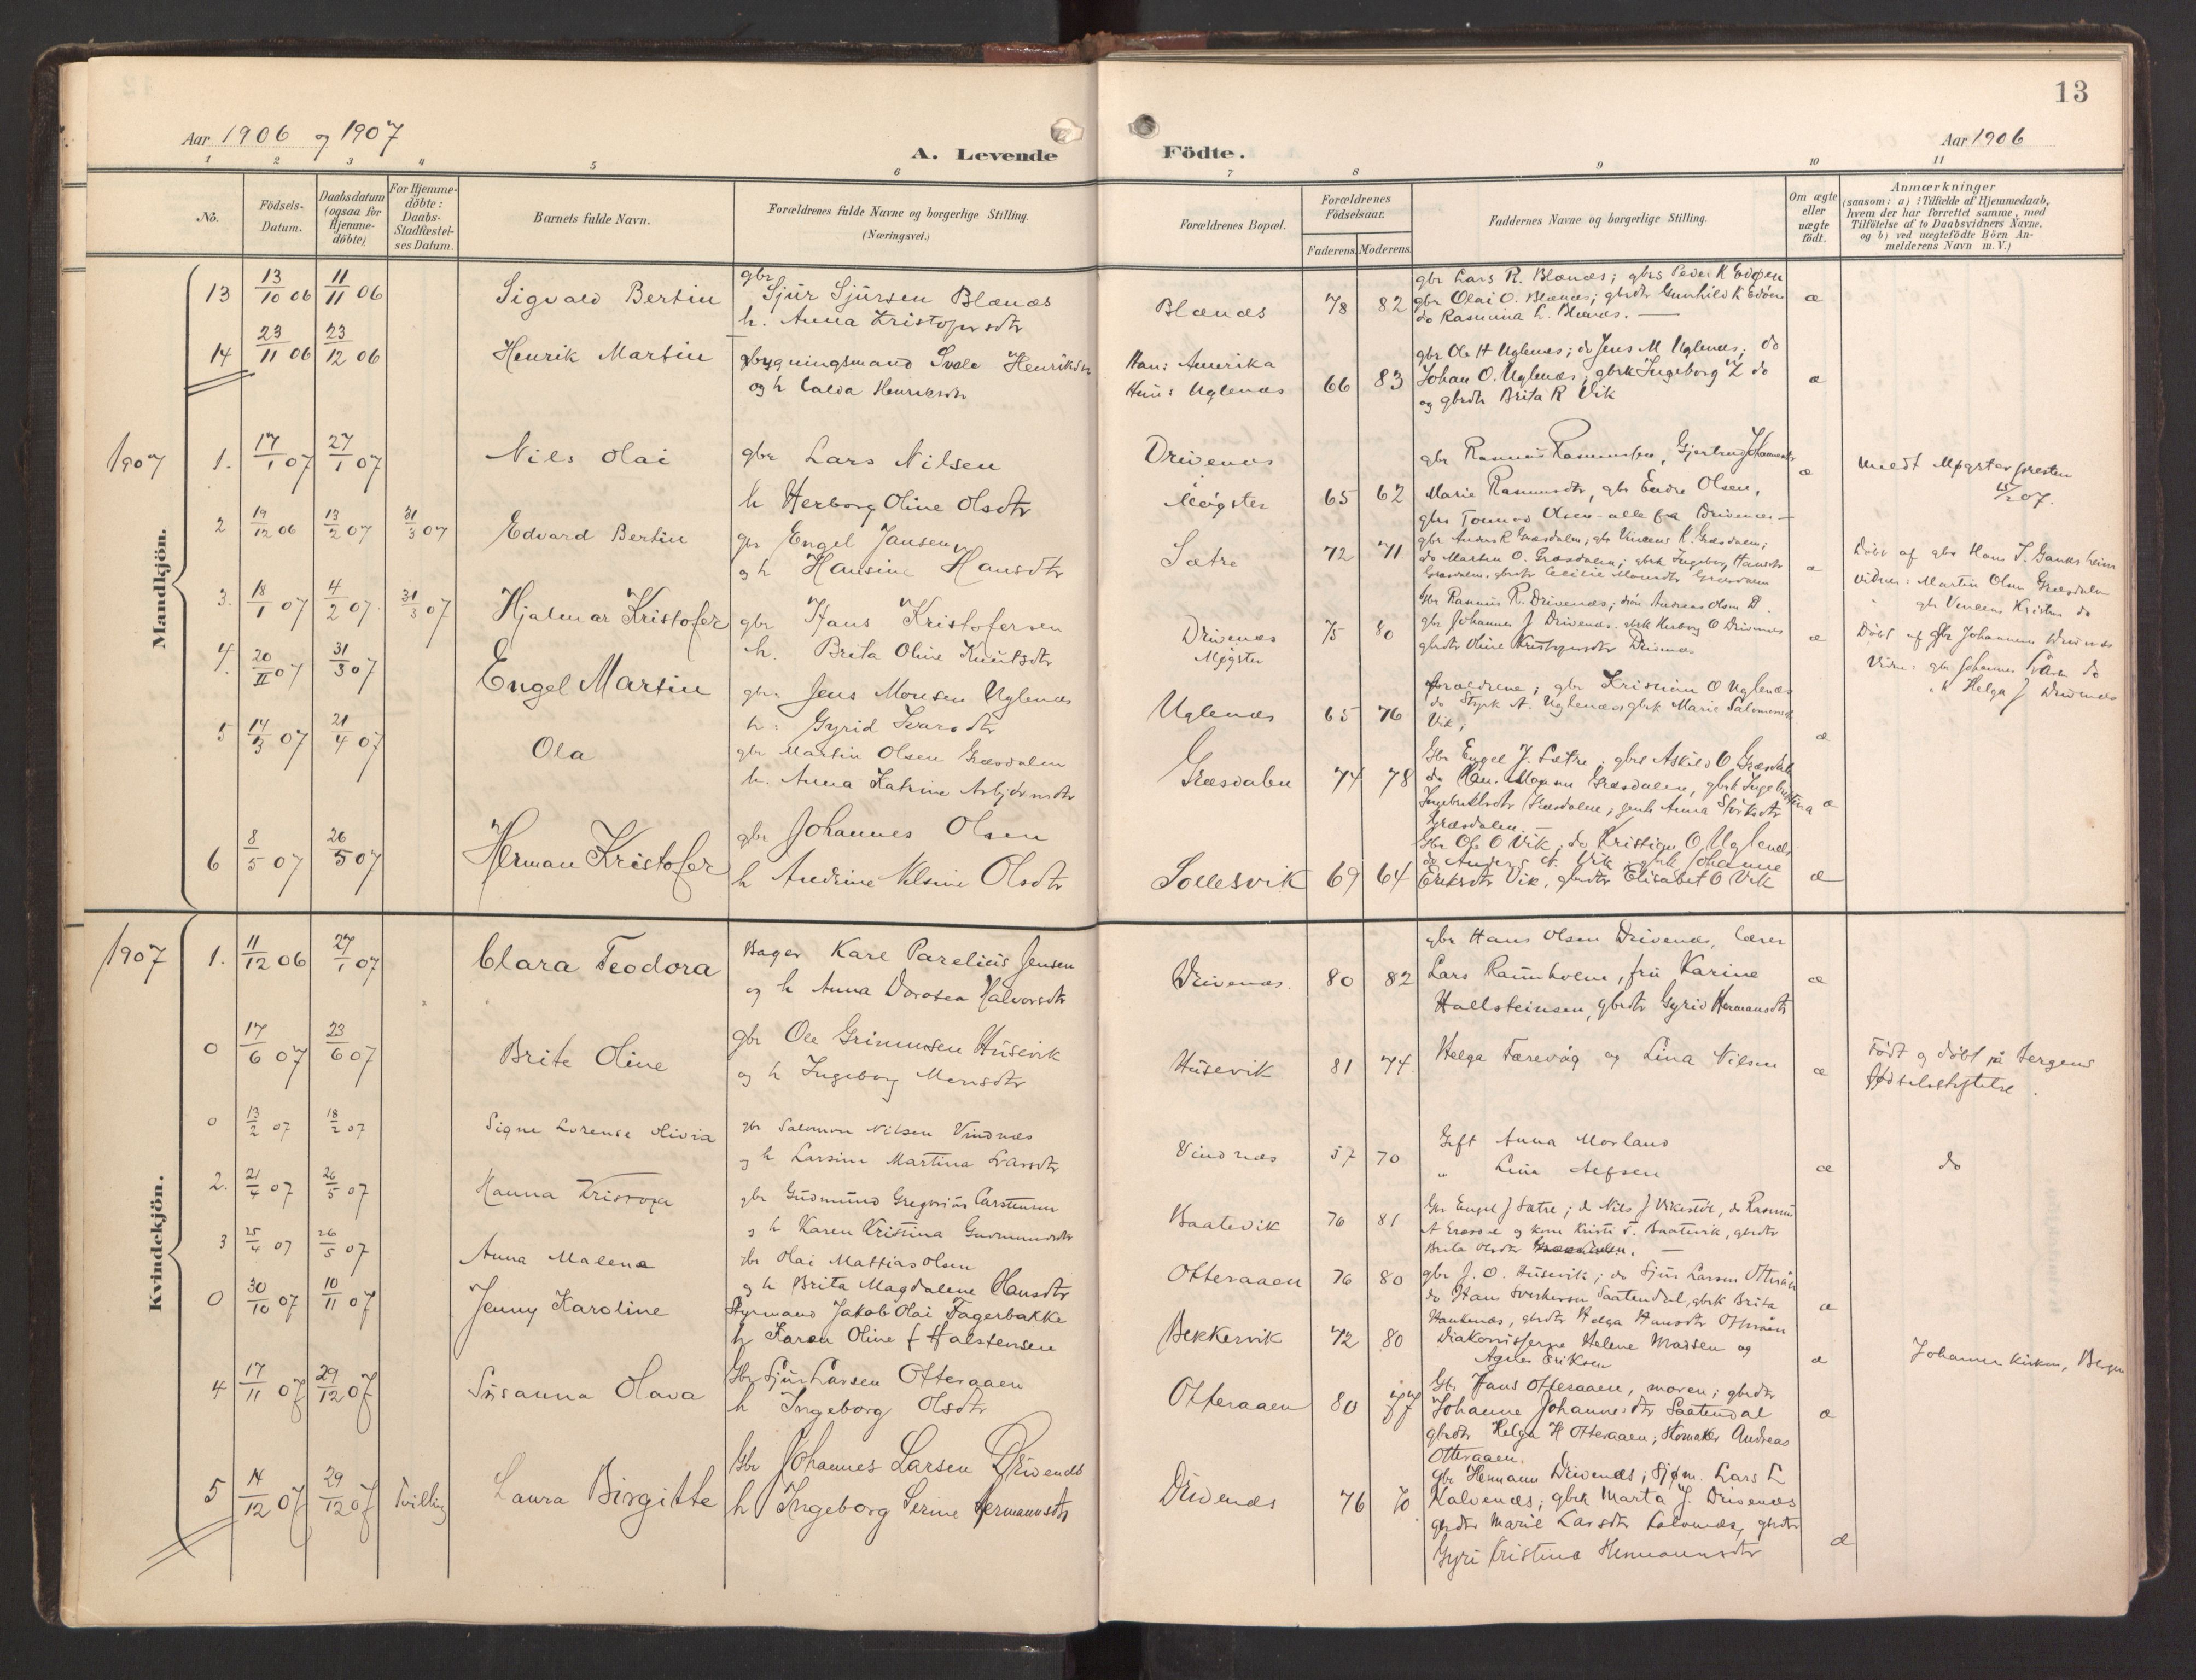 13
Aar 1906 og 1907
A. Levende Födte.
Aar 1906
1 2 3 4 5 6 7 8 9 10 11
No.
Födsels-
Datum.
Daabsdatum
(ogsaa for
Hjemme-
döbte)
For Hjemme-
döbte:
Daabs-
Stadfæstel-
ses Datum.
Barnets fulde Navn.
Forældrenes fulde Navne og borgerlige Stilling.
(Næringsvei.)
Forældrenes Bopæl.
Forældrenes
Födselsaar.
Faderens. Moderens.
Faddernes Navne og borgerlige Stilling.
Om ægte
eller
uægte
födt.
Anmærkninger
(saasom: a) i Tilfælde af Hjemmedaab,
hvem der har forrettet samme, med
Tilföielse af to Daabsvidners Navne.
og b) ved uægtefödte Börn An-
melderens Navn m. V.)
Mandkjön.
13 13/10 06 11/11 06 Sigvald Bertin
gbr Sjur Sjursen Blænæs
h. Anna Kristofersdtr
Blænæs 78 82
gbr Lars R. Blænæs; gbrs Peder K
gbr Olai O. Blænæs; gbrdtr Gunhild K
do Rasmina L. Blænæs. æ
14 23/11 06 23/12 06 Henrik Martin
gbygningsmand Svale Henriksen
og h Henriksdtr
Han: Amerika
Hun: Uglenæs 66 83
gbr Ole H Uglenæs; do Jens M Uglenæs; do
Johan O. Uglenæs; gbrk Ingeborg do
og gbrdtr Brita R Vik æ
1907 1. 17/1 07 27/1 07 Nils Olai
gbr Lars Nilsen
h Herborg Oline Olsdtr
Drivenæs
i Møgster 65 62
gbr Rasmus Rasmussen, Gjertrud Johannesdtr
Marie Rasmusdtr, gbr Endre Olsen,
gbrs Olsen - alle fra Drivenæs - æ
Møgster
15/2 07.
2 19/12 06 13/2 07 31/3 07 Edvard Bertin
gbr Engel Jansen
og h Hansine Hansdtr
Sætre 72 71
gbr Anders R Græsdalen; gbr Vincens K. Græsdalen;
do Martin O. Græsdalen; gbrk Ingeborg Hansdtr
Græsdalen, Cecilie Monsdtr Græsdalen æ
Döbt af gbr Hans J.
Vidner: Martin Olsen Græsdalen
" gbr Vincens Kristen do
3. 18/1 07 4/2 07 31/3 07 Hjalmar Kristofer
gbr Hans Kristofersen
h. Brita Oline Knutsdtr
Drivenæs
Møgster 75 80
gbr Rasmus R. Drivenæs; Andreas Olsen D.
gbr Johannes J Drivenæs. gbrk Herborg O Drivenæs
gbrdtr Oline Kristofersdtr Drivenæs æ
Döbt af gbr Johannes Drivenæs
Vidne: gbr Johannes Lars. do
" k Helga J Drivenæs
4. 20/II 07 31/3 07 Engel Martin
gbr. Jens Monsen Uglenæs
h. Gyrid Ivarsdtr
Uglenæs 65 76
Forældrene; gbr Kristian O Uglenæs
do Styrk A. Uglenæs gbrk Marie Salomonsdtr
Vik; æ
5 14/3 07 21/4 07 Ola
gbr Martin Olsen Græsdalen
h. Anna Katrine Asbjörnsdtr
Græsdalen 74 78
Gbr Engel J. Sætre; gbrs Askild O Græsdal
do Monsen Græsdalen, gbrk Ingeb Stina
Ingebrikt dtr Græsdalen; Anna Styrksdtr
Græsdalen. æ
6 8/5 07 26/5 07 Herman Kristofer
gbr Johannes Olsen
h Andrine Nilsine Olsdtr
Sollesvik 69 64
Gbr Ole O Vik; do Kristian O Uglenæs
do Anders A. Vik gbrk Johanne
Eriksdtr Vik, gbrdtr Elisabet O Vik æ
Kvindekjön.
1907 1. 11/12 06 27/1 07 Clara Teodora
Bager Karl Parelius Jensen
og h Anna Dorotea Halvorsdtr
Drivenæs. 80 82
gbr Hans Olsen Drivenæs, lærer
Lars Raunholm, fru Karine
Hallsteinsen, gbrdtr Gyrid Hermansdtr æ
0 17/6 07 23/6 07 Brite Oline
gbr Ole Grimmsen Husevik
og h Ingeborg Monsdtr
Husevik 81 74
Helga Færevåg og Lina Nilsen æ
Født og døbt på Bergens
fødselsstiftelse.
0 13/2 07 18/2 07 Signe Lorense Olivia
gbr Salomon Nilsen Vindnæs
og h Larsine Martina Larsdtr
Vindnæs 57 70
Gift Anna Morland
" Lina æ
do
2. 21/4 07 26/5 07 Hanna
gbr Gudmund Gregorius Carstensen
og h Karen Kristina Gudmundsdtr
Baatevik 76 81
Gbr Engel J Sætre; do Nils J Vikestöl, do Rasmus
A og kone Kristi T. Baatevik, gbrdtr
Brita Olsdtr
3 25/4 07 26/5 07 Anna Malena
gbr Olai Mattias Olsen
og h Brita Magdalene Hansdtr
Otteraaen 76 80
gbr J. O. Husevik; do Sjur Larsen Otteraaen
do Hans Saatendal, gbrk Brita
Haukenæs, gbrdtr Helga Hansdtr Otteraaen æ
0 30/10 07 10/11 07 Jenny Karoline
Styrmand Jakob Olai Fagerbakke
h Karen Oline f Halstensen
Bekkervik 72 80
Diakonisserne Helene Madsen og
Agnes Eriksen æ
Johannes kirken, Bergen
4 17/11 07 29/12 07 Susanna Olava
Gbr Sjur Larsen Otteraaen
h Ingeborg Olsdtr
Otteraaen 80 77
Gbr Hans Otteraaen, moren; gbrdtr
Johanne Johannesdtr Saatendal
gbrdtr Helga H Otteraaen; Skomaker Andreas
Otteraaen. æ
5 14/12 07 29/12 07 Tvilling Laura Birgitte
Gbr Johannes Larsen Drivenes
h Ingeborg Serine Hermannsdtr
Drivenes 76 70
gbr Hermann Drivenæs; Sjøm. Lars L
Kalvenæs; gbrk Marta J. Drivenæs
gbrdtr Marie Larsdtr Kalvenæs, gbrdtr
Gyri Kristina Hermannsdtr æ